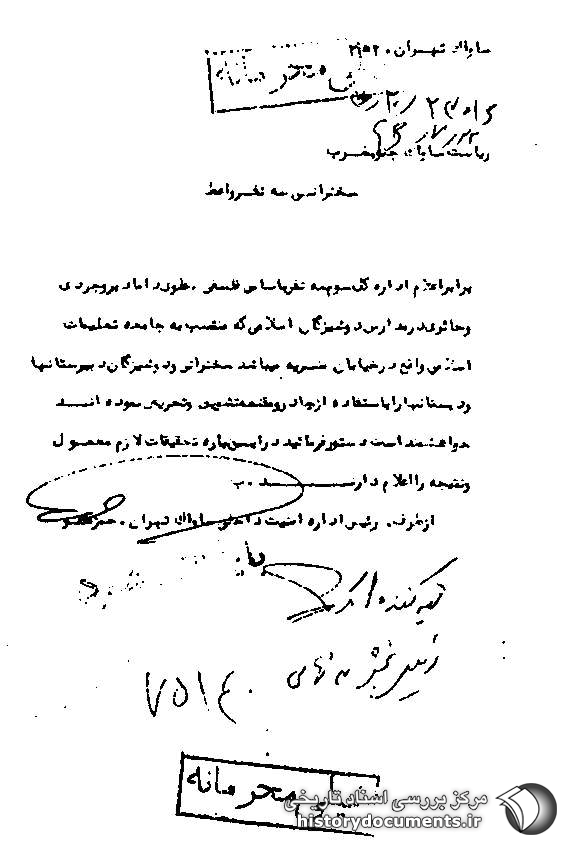 ساواك تهران
خیلی محرمانه
ریاست ساواك جنوبغرب
سخنرانی سه نفر واعظ
برابر اعلام اداره کل سوم سه نفر باسامی فلسفی . علوی داماد بروجردی
و حائری در مدارس دوشیزگان اسلامی که منتسب به جامعه تعلیمات
اسلامی واقع در خیابان میباشد سخنرانی و دوشیزگان دبیرستانها
و دبستانها را باستفاده از چادر و مقنعه تشویق و تحریص نموده اند
خواهشمند است دستور فرمائید در این باره تحقیقات لازم معمول
و نتیجه را اعلام دارند . ب
از طرف . رئیس اداره امنیت داخلی ساواك تهران .
تهیه کننده
رئیس بخش
خیلی محرمانه
مرکز بررسی اسناد تاریخی
historydocuments.ir